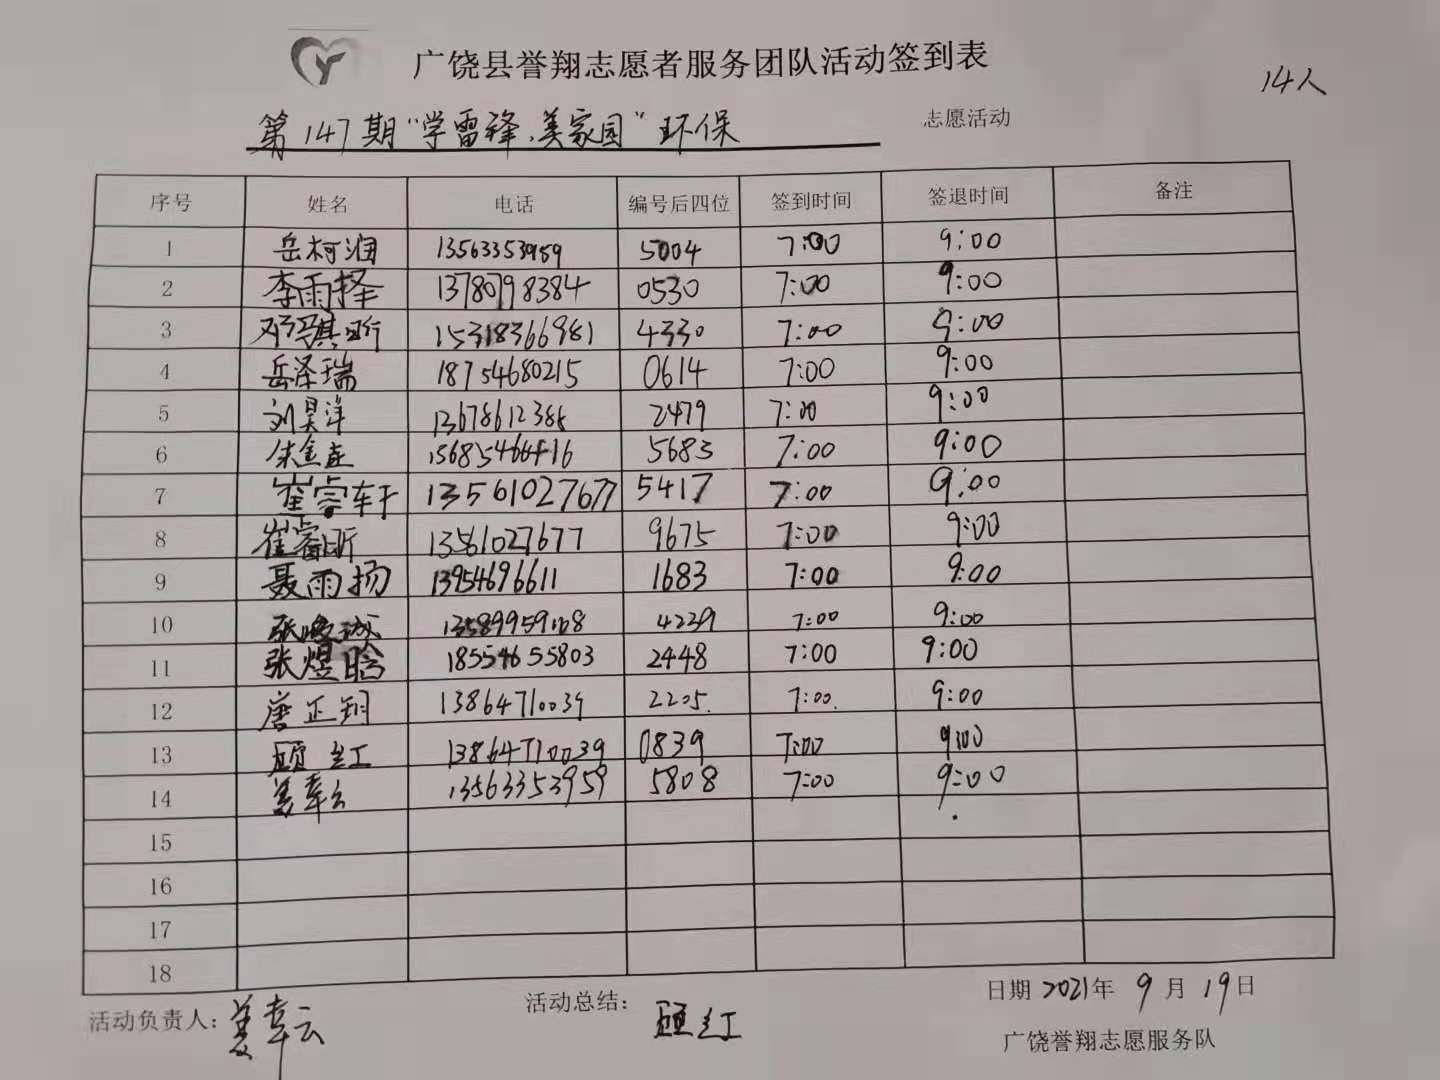 广饶县誉翔志愿者服务团队活动签到表
14人
第147期“学雷锋、美家园”环保 志愿活动
序号 姓名 电话 编号后四位 签到时间 签退时间 备注
1 岳柯润 13563353959 5004 7:00 9:00
2 李雨择 13780798384 0530 7:00 9:00
3 邓琪昕 15318366981 4330 7:00 9:00
4 岳泽瑞 18754680215 0614 7:00 9:00
5 刘昊洋 13678612386 2479 7:00 9:00
6 15685466416 5683 7:00 9:00
7 崔睿轩 13561027677 5417 7:00 9:00
8 崔睿昕 13561027677 9675 7:00 9:00
9 聂雨扬 13954696611 1683 7:00 9:00
10 张 诚 13589959108 4239 7:00 9:00
11 张煜晗 18554655803 2448 7:00 9:00
12 唐正翔 13864710039 2205. 7:00. 9:00
13 顾红 13864710039 0839 7:00 9:00
14 姜幸云 13563353959 5808 7:00 9:00
15
16
17
18
活动负责人：姜幸云 活动总结：顾红 日期 2021年 9月 19日
广饶誉翔志愿服务队